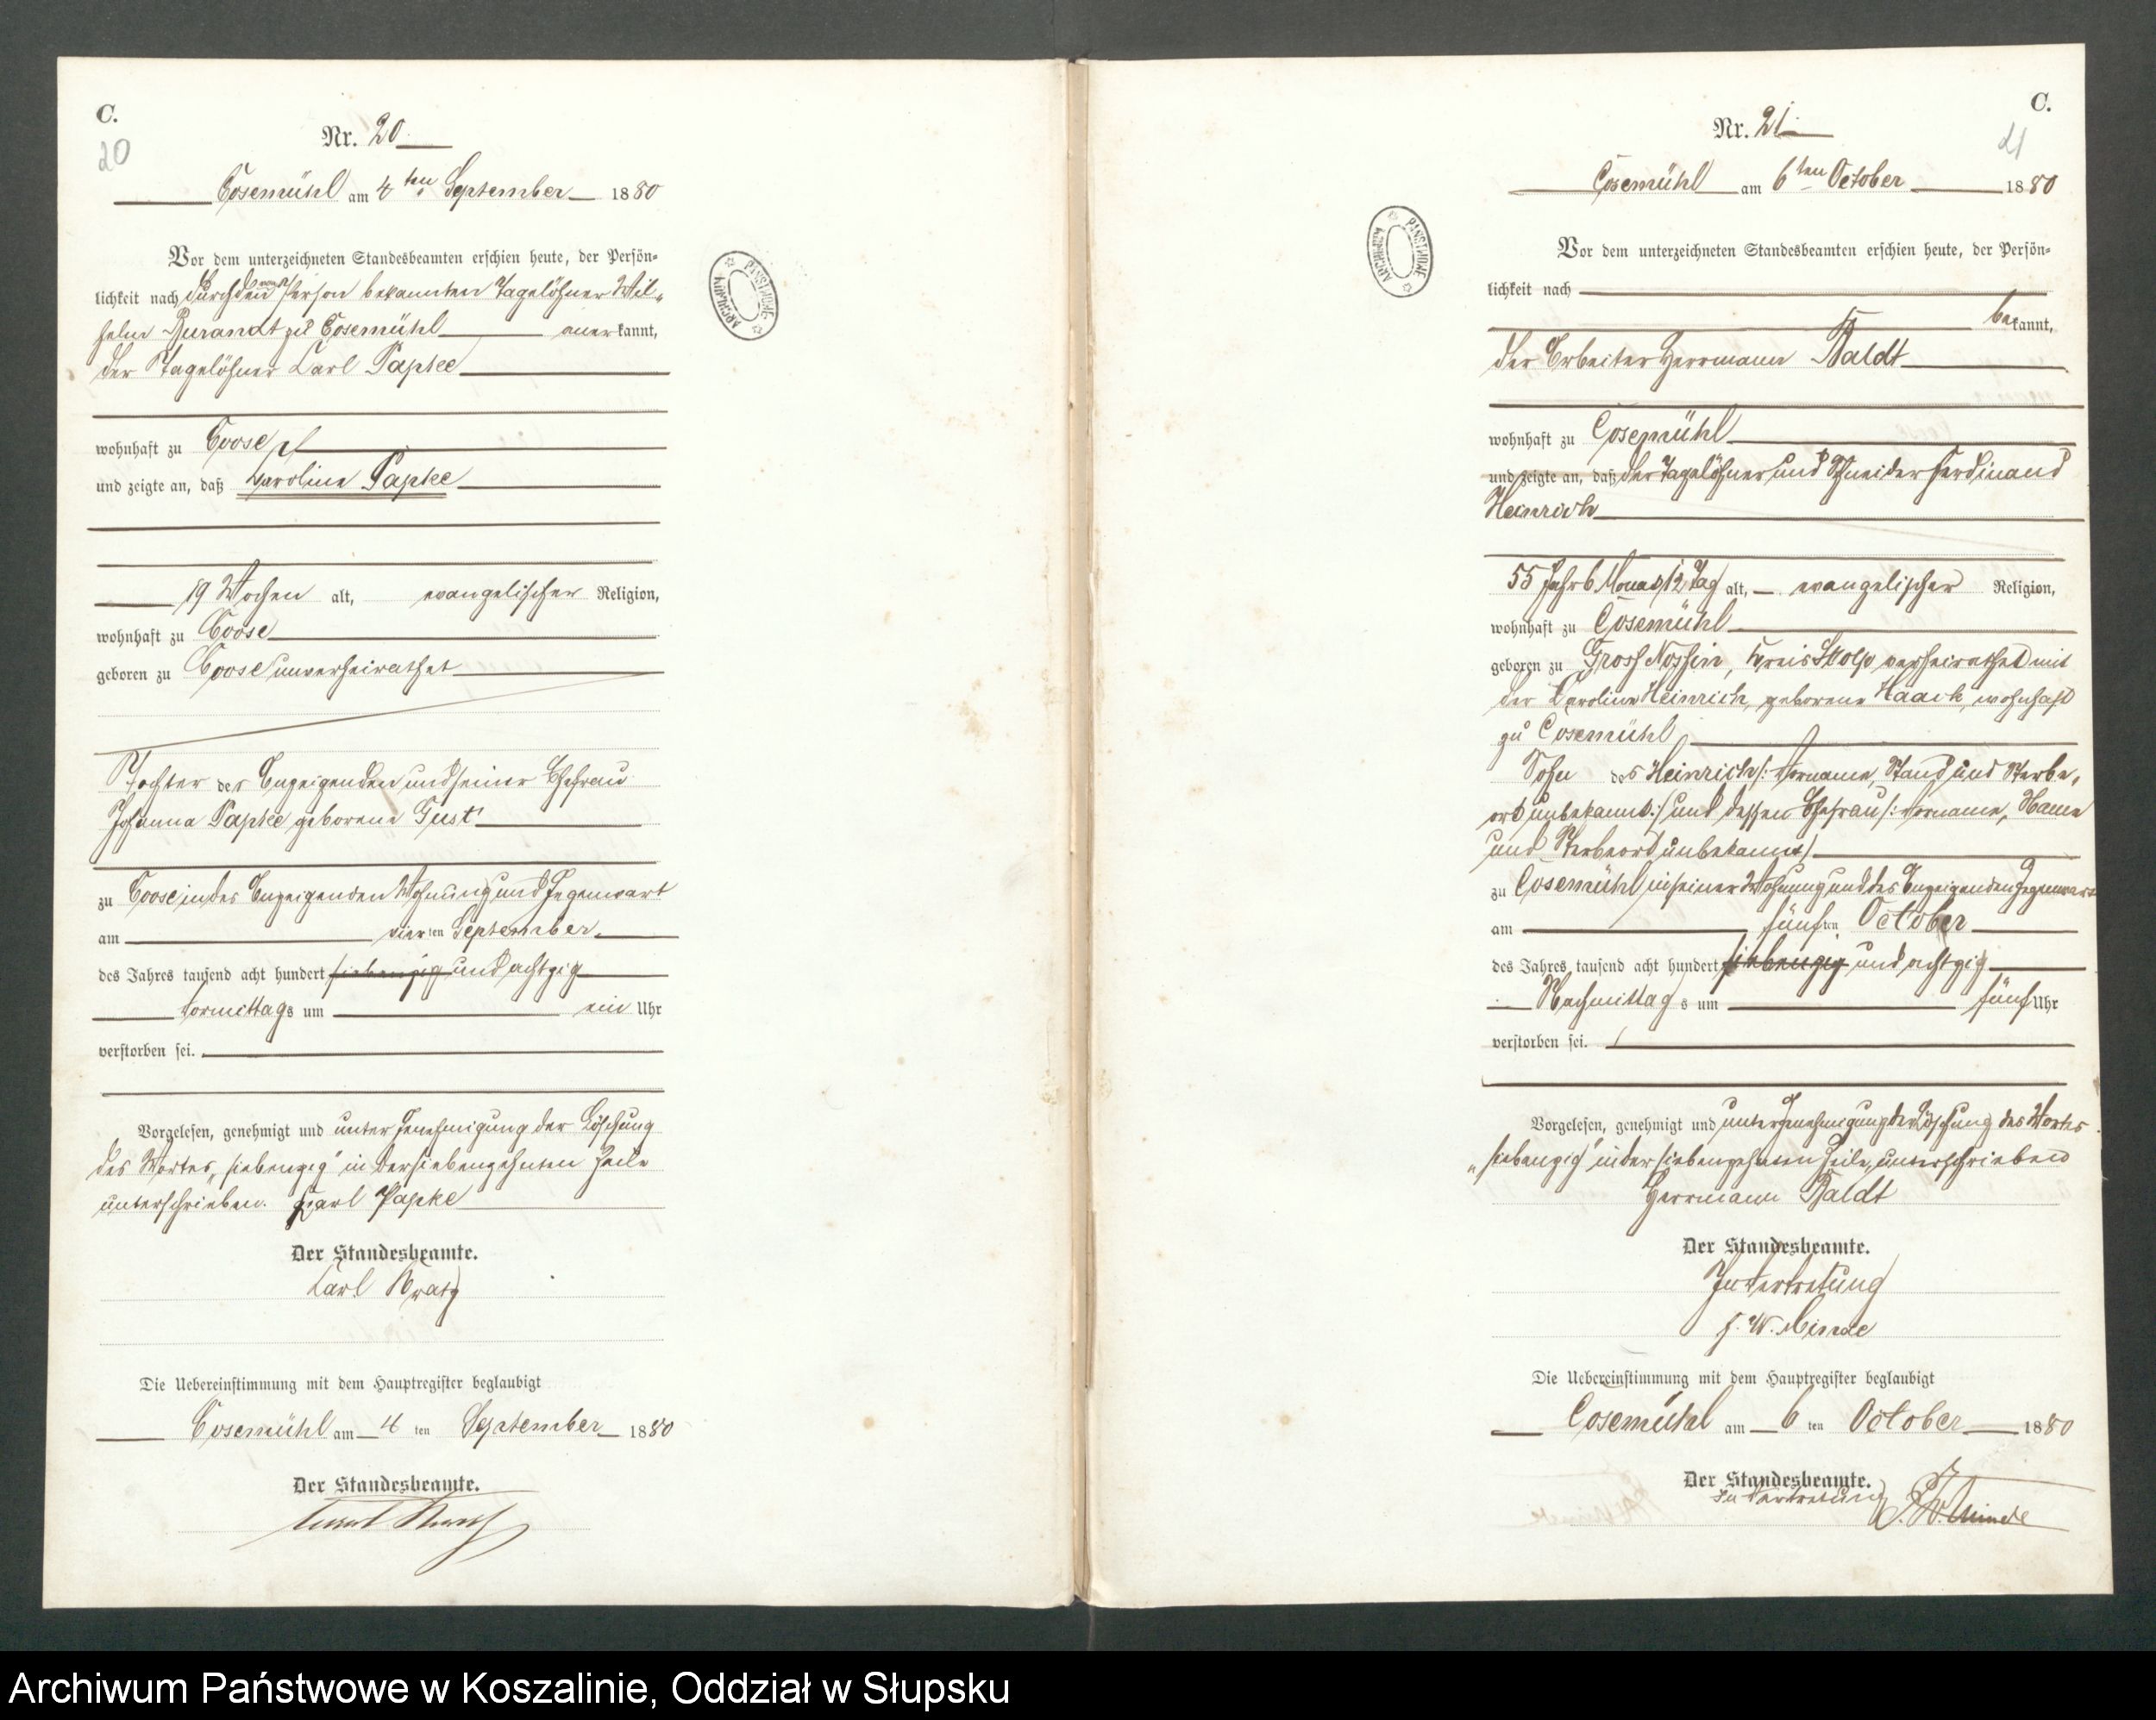 C.
20
Nr. 20
Cosemühl am 4ten September 1880
Vor dem unterzeichneten Standesbeamten erschien heute, der Persön-
lichkeit nach durch den von Person bekannten Tagelöhner Wil-
helm Durandt zu Cosemühl anerkannt,
der Tagelöhner Carl Papke
wohnhaft zu Coose
und zeigte an, daß Karoline Papke
19 Wochen alt, evangelischer Religion,
wohnhaft zu Coose
geboren zu Coose unverheirathet
Tochter des Anzeigenden und seiner Ehefrau
Johanna Papke geborene Gust
zu Coose in des Anzeigenden Wohnung und Gegenwart
am vierten September
des Jahres tausend acht hundert siebenzig und achtzig
Vormittags um ein Uhr
verstorben sei.
Vorgelesen, genehmigt und unter Genehmigung der Löschung
des Wortes „siebenzig" in der siebenzehnten Zeile
unterschrieben. Carl Papke
Der Standesbeamte.
Carl
Die Uebereinstimmung mit dem Hauptregister beglaubigt
Cosemühl am 4 ten September 1880
Der Standesbeamte.
C.
21
Nr. 21
Cosemühl am 6ten October 1880
Vor dem unterzeichneten Standesbeamten erschien heute, der Persön-
lichkeit nach
bekannt,
der Arbeiter Herrmann Raldt
wohnhaft zu Cosemühl
und zeigte an, daß der Tagelöhner und Schneider Ferdinand
Heinrich
55 Jahr 6 Monat 12 Tag alt, evangelischer Religion,
wohnhaft zu Cosemühl
geboren zu Gross Nossin, Kreis Stolp verheirathet mit
der Caroline Heinrich, geborene Haack, wohnhaft
zu Cosemühl
Sohn des Heinrich /: Vorname, Stand und Sterbe-
ort unbekannt :/ und dessen Ehefrau /: Vorname, Name
und Sterbeort unbekannt /
zu Cosemühl in seiner Wohnung und des Anzeigenden Gegenwart
am fünften October
des Jahres tausend acht hundert siebenzig und achtzig
Nachmittags um fünf Uhr
verstorben sei.
Vorgelesen, genehmigt und unter Genehmigung der Löschung des Wortes
„siebenzig" in der siebenzehnten Zeile, unterschrieben
Herrmann Raldt
Der Standesbeamte.
In Vertretung
F. W. Minde
Die Uebereinstimmung mit dem Hauptregister beglaubigt
Cosemühl am 6 ten October 1880
Der Standesbeamte.
In Vertretung F. W. Minde
ARCHIWUM PAŃSTWOWE
ARCHIWUM PAŃSTWOWE
Archiwum Państwowe w Koszalinie, Oddział w Słupsku